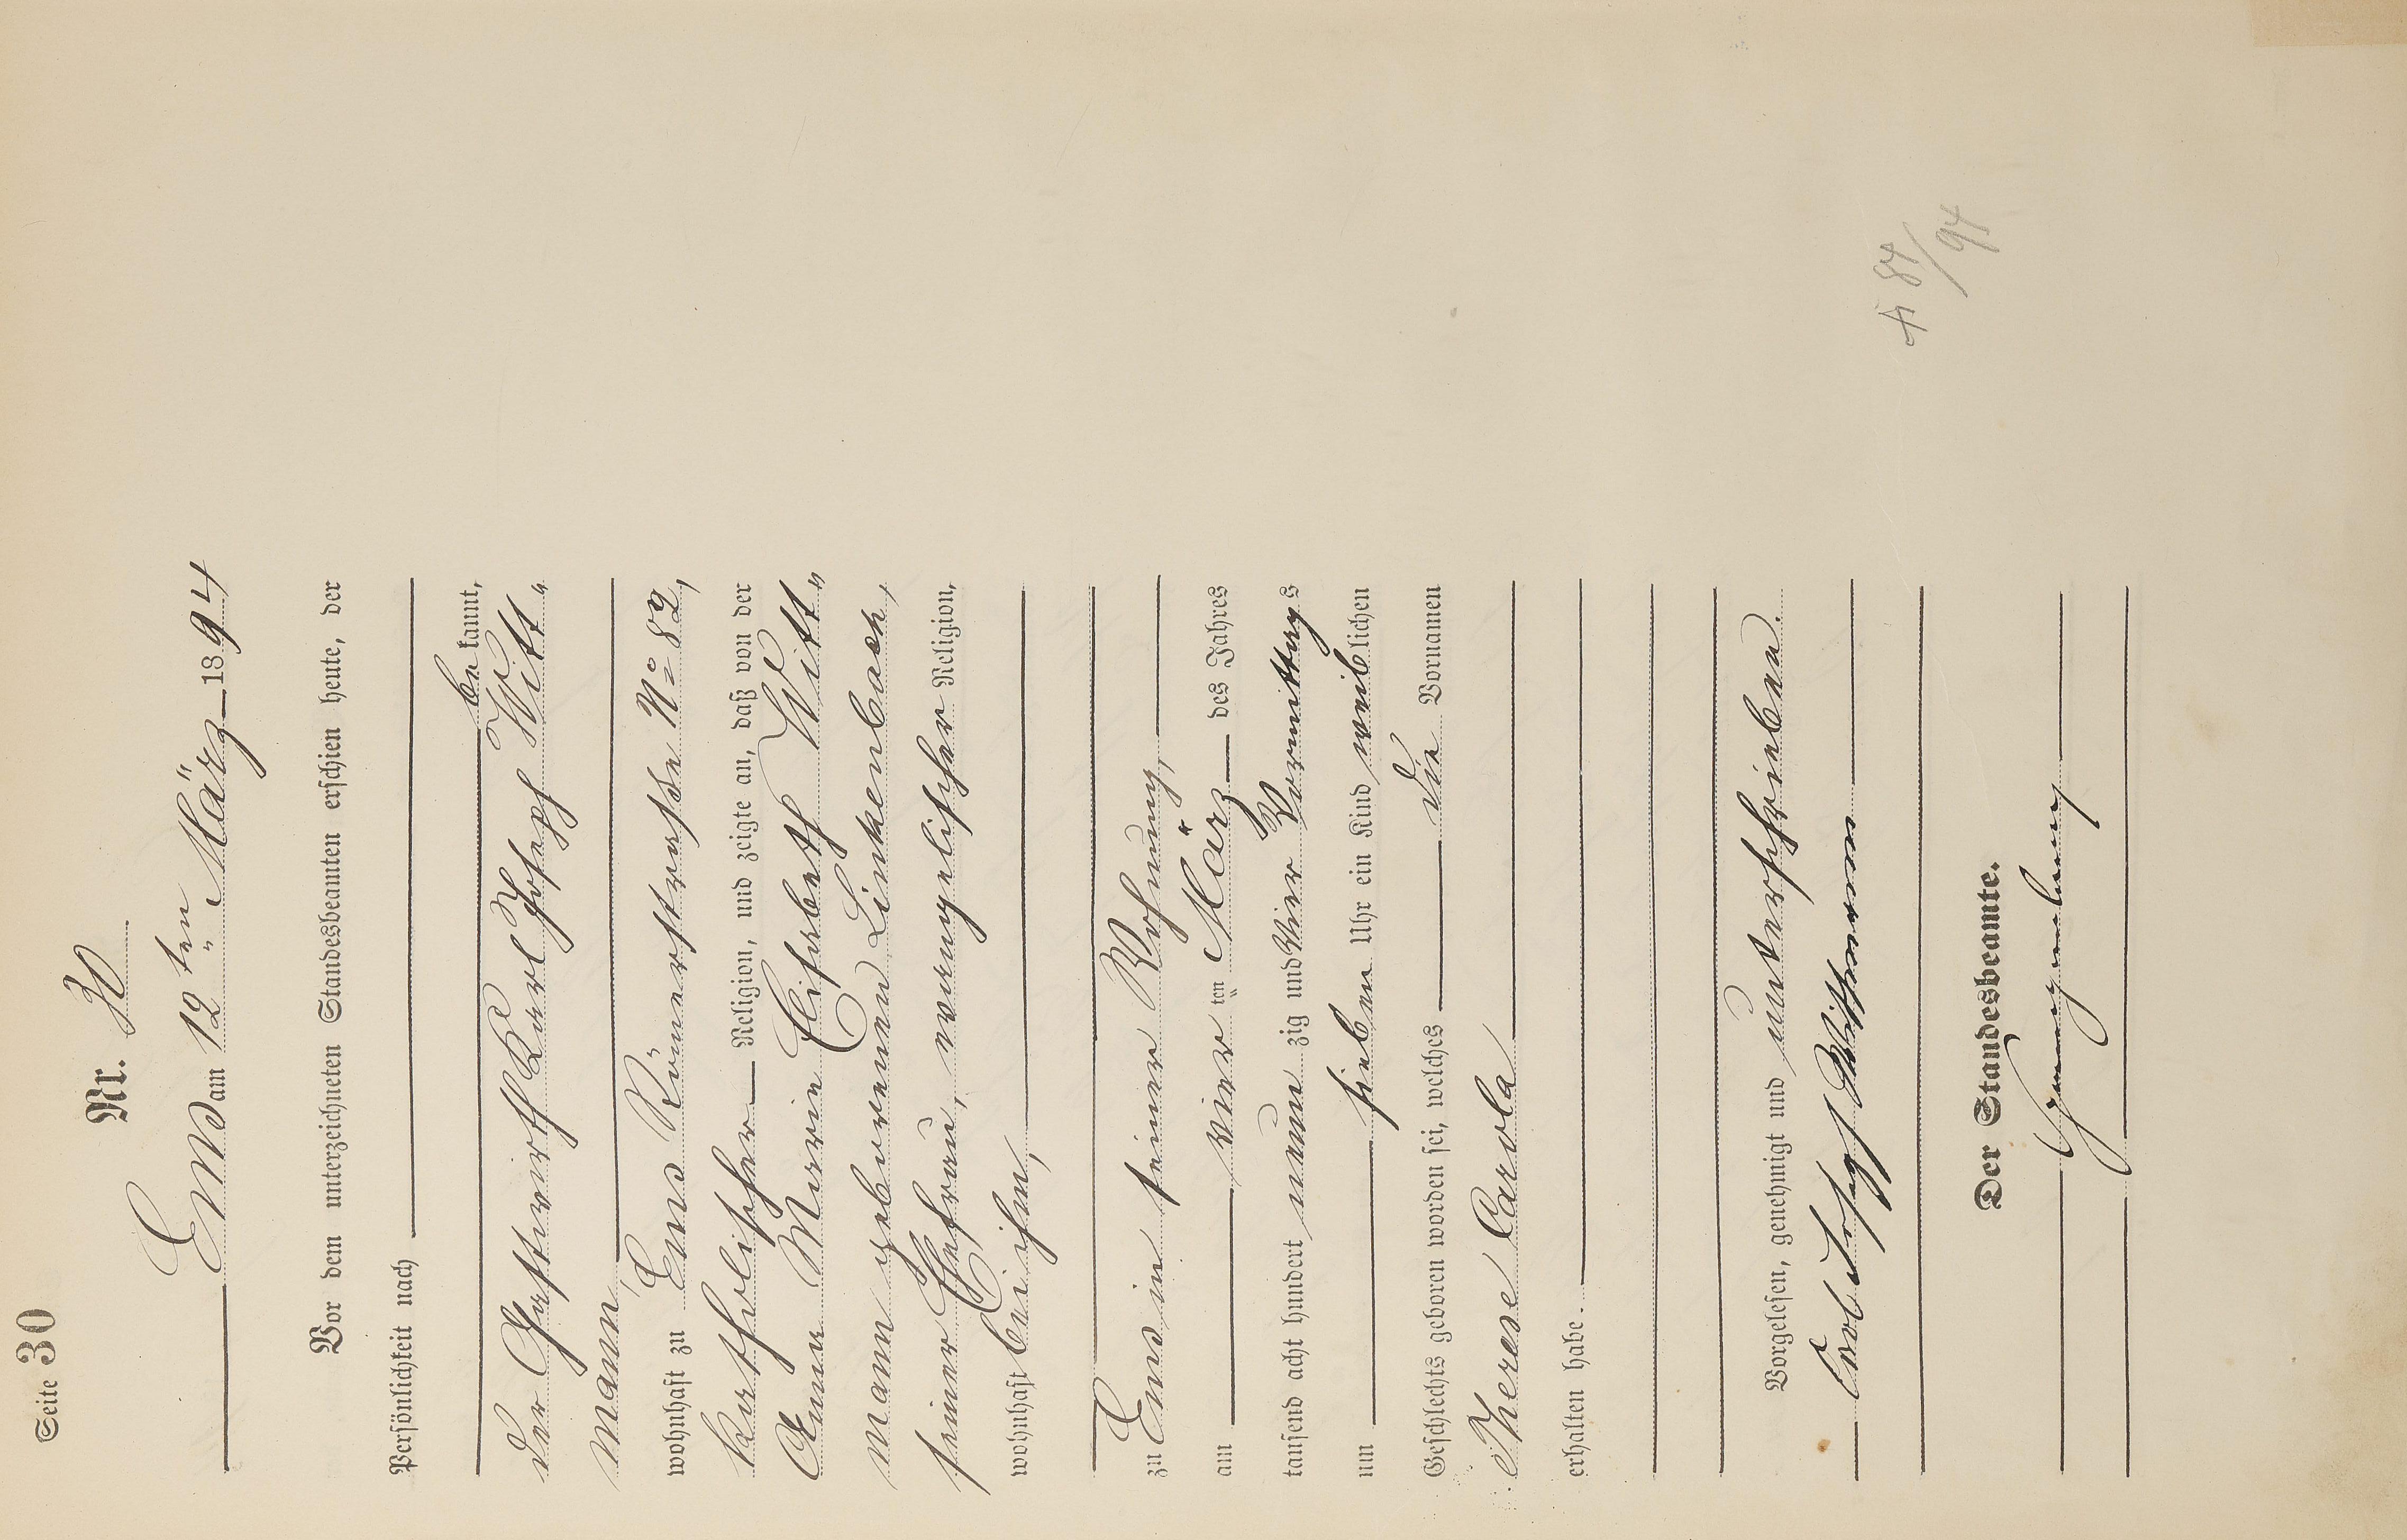 Seite 30
Nr. 30
Ems am 12ten März 1894
Vor dem unterzeichneten Standesbeamten erschien heute, der
Persönlichkeit nach
bekannt,
der Gastwirth Karl Joseph Witt-
mann
wohnhaft zu Ems Römerstrasse No 82,
katholischer Religion, und zeigte an, daß von der
Anna Maria Elisabeth Witt-
mann geborenen Linkenbach,
seiner Ehefrau, evangelischer Religion,
wohnhaft bei ihm,
zu Ems in seiner Wohnung,
am vierten März des Jahres
tausend acht hundert neunzig und vier Vormittags
um sieben Uhr ein Kind weiblichen
Geschlechts geboren worden sei, welches die Vornamen
Therese Carola
erhalten habe.
Vorgelesen, genehmigt und unterschrieben.
Carl Joseph Wittmann
Der Standesbeamte.
84/94